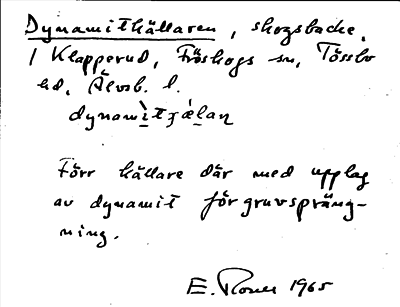 Dynamitkällaren, skogsbacke,
i Klapperud, Fröskogs sn, Tössbo
hd, Älvsb. l.
dynamìtʒǽlaɳ
Förr källare där med upplag
av dynamit för gruvspräng-
ning.
E. 1965